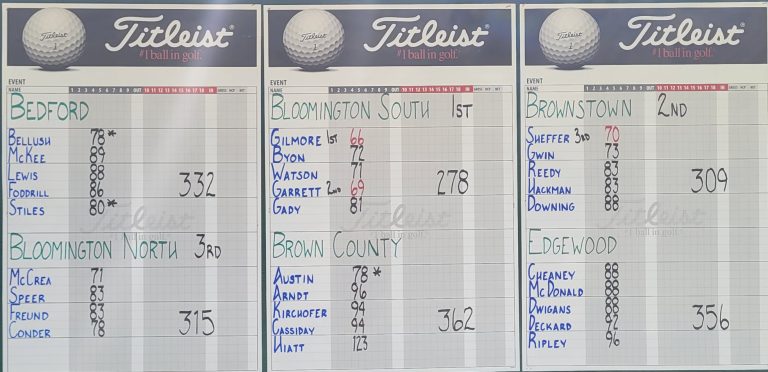 Titleist
Titleist®
#1 ball in golf.
EVENT
NAME 1 2 3 4 5 6 7 8 9 OUT 10 11 12 13 14 15 16 17 18 IN GROSS HCP NET
BEDFORD
BELLUSH 78*
MCKEE 89
LEWIS 88
FODDRILL 86
STILES 80*
332
Titleist
BLOOMINGTON NORTH 3RD
MCCREA 71
SPEER 83
FREUND 83
CONDER 78
315
Titleist
Titleist®
#1 ball in golf.
EVENT
NAME 1 2 3 4 5 6 7 8 9 OUT 10 11 12 13 14 15 16 17 18 IN GROSS HCP NET
BLOOMINGTON SOUTH 1ST
GILMORE 1ST 66
BYON 72
WATSON 71
GARRETT 2ND 69
GADY 81
278
Titleist
#1 ball in golf.
BROWN COUNTY
AUSTIN 78*
ARNDT 96
KIRCHOFER 94
CASSIDAY 94
HIATT 123
362
Titleist
Titleist®
#1 ball in golf.
EVENT
NAME 1 2 3 4 5 6 7 8 9 OUT 10 11 12 13 14 15 16 17 18 IN GROSS HCP NET
BROWNSTOWN 2ND
SHEFFER 3RD 70
GWIN 73
REEDY 83
HACKMAN 83
DOWNING 88
309
Titleist
EDGEWOOD
CHEANEY 88
MCDONALD 88
DWIGANS 88
DECKARD 92
RIPLEY 96
356